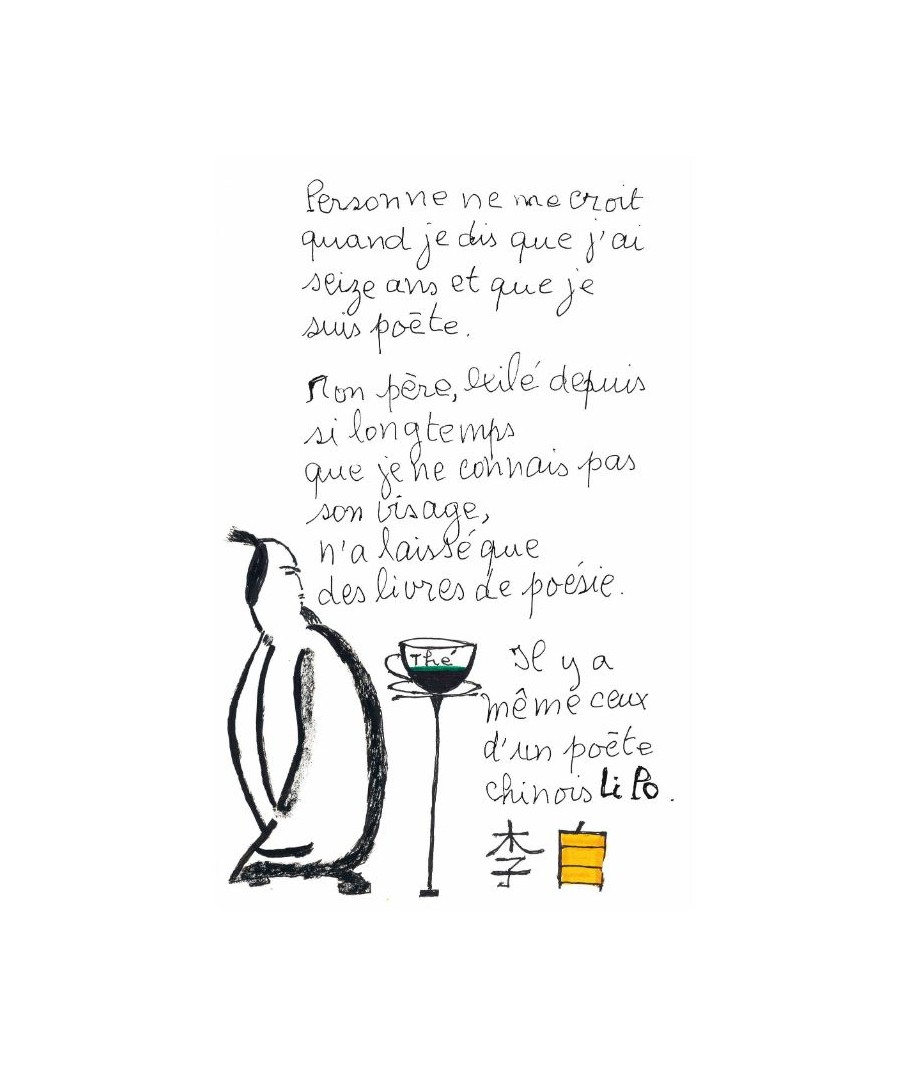 Personne ne me croit
quand je dis que j'ai
seize ans et que je
suis poēte.
Mon père, exilé depuis
si longtemps
que je ne connais pas
son visage,
n'a laissé que
des livres de poésie.
Thé
Il y a
même ceux
d'un poēte
chinois Li Po.
李白